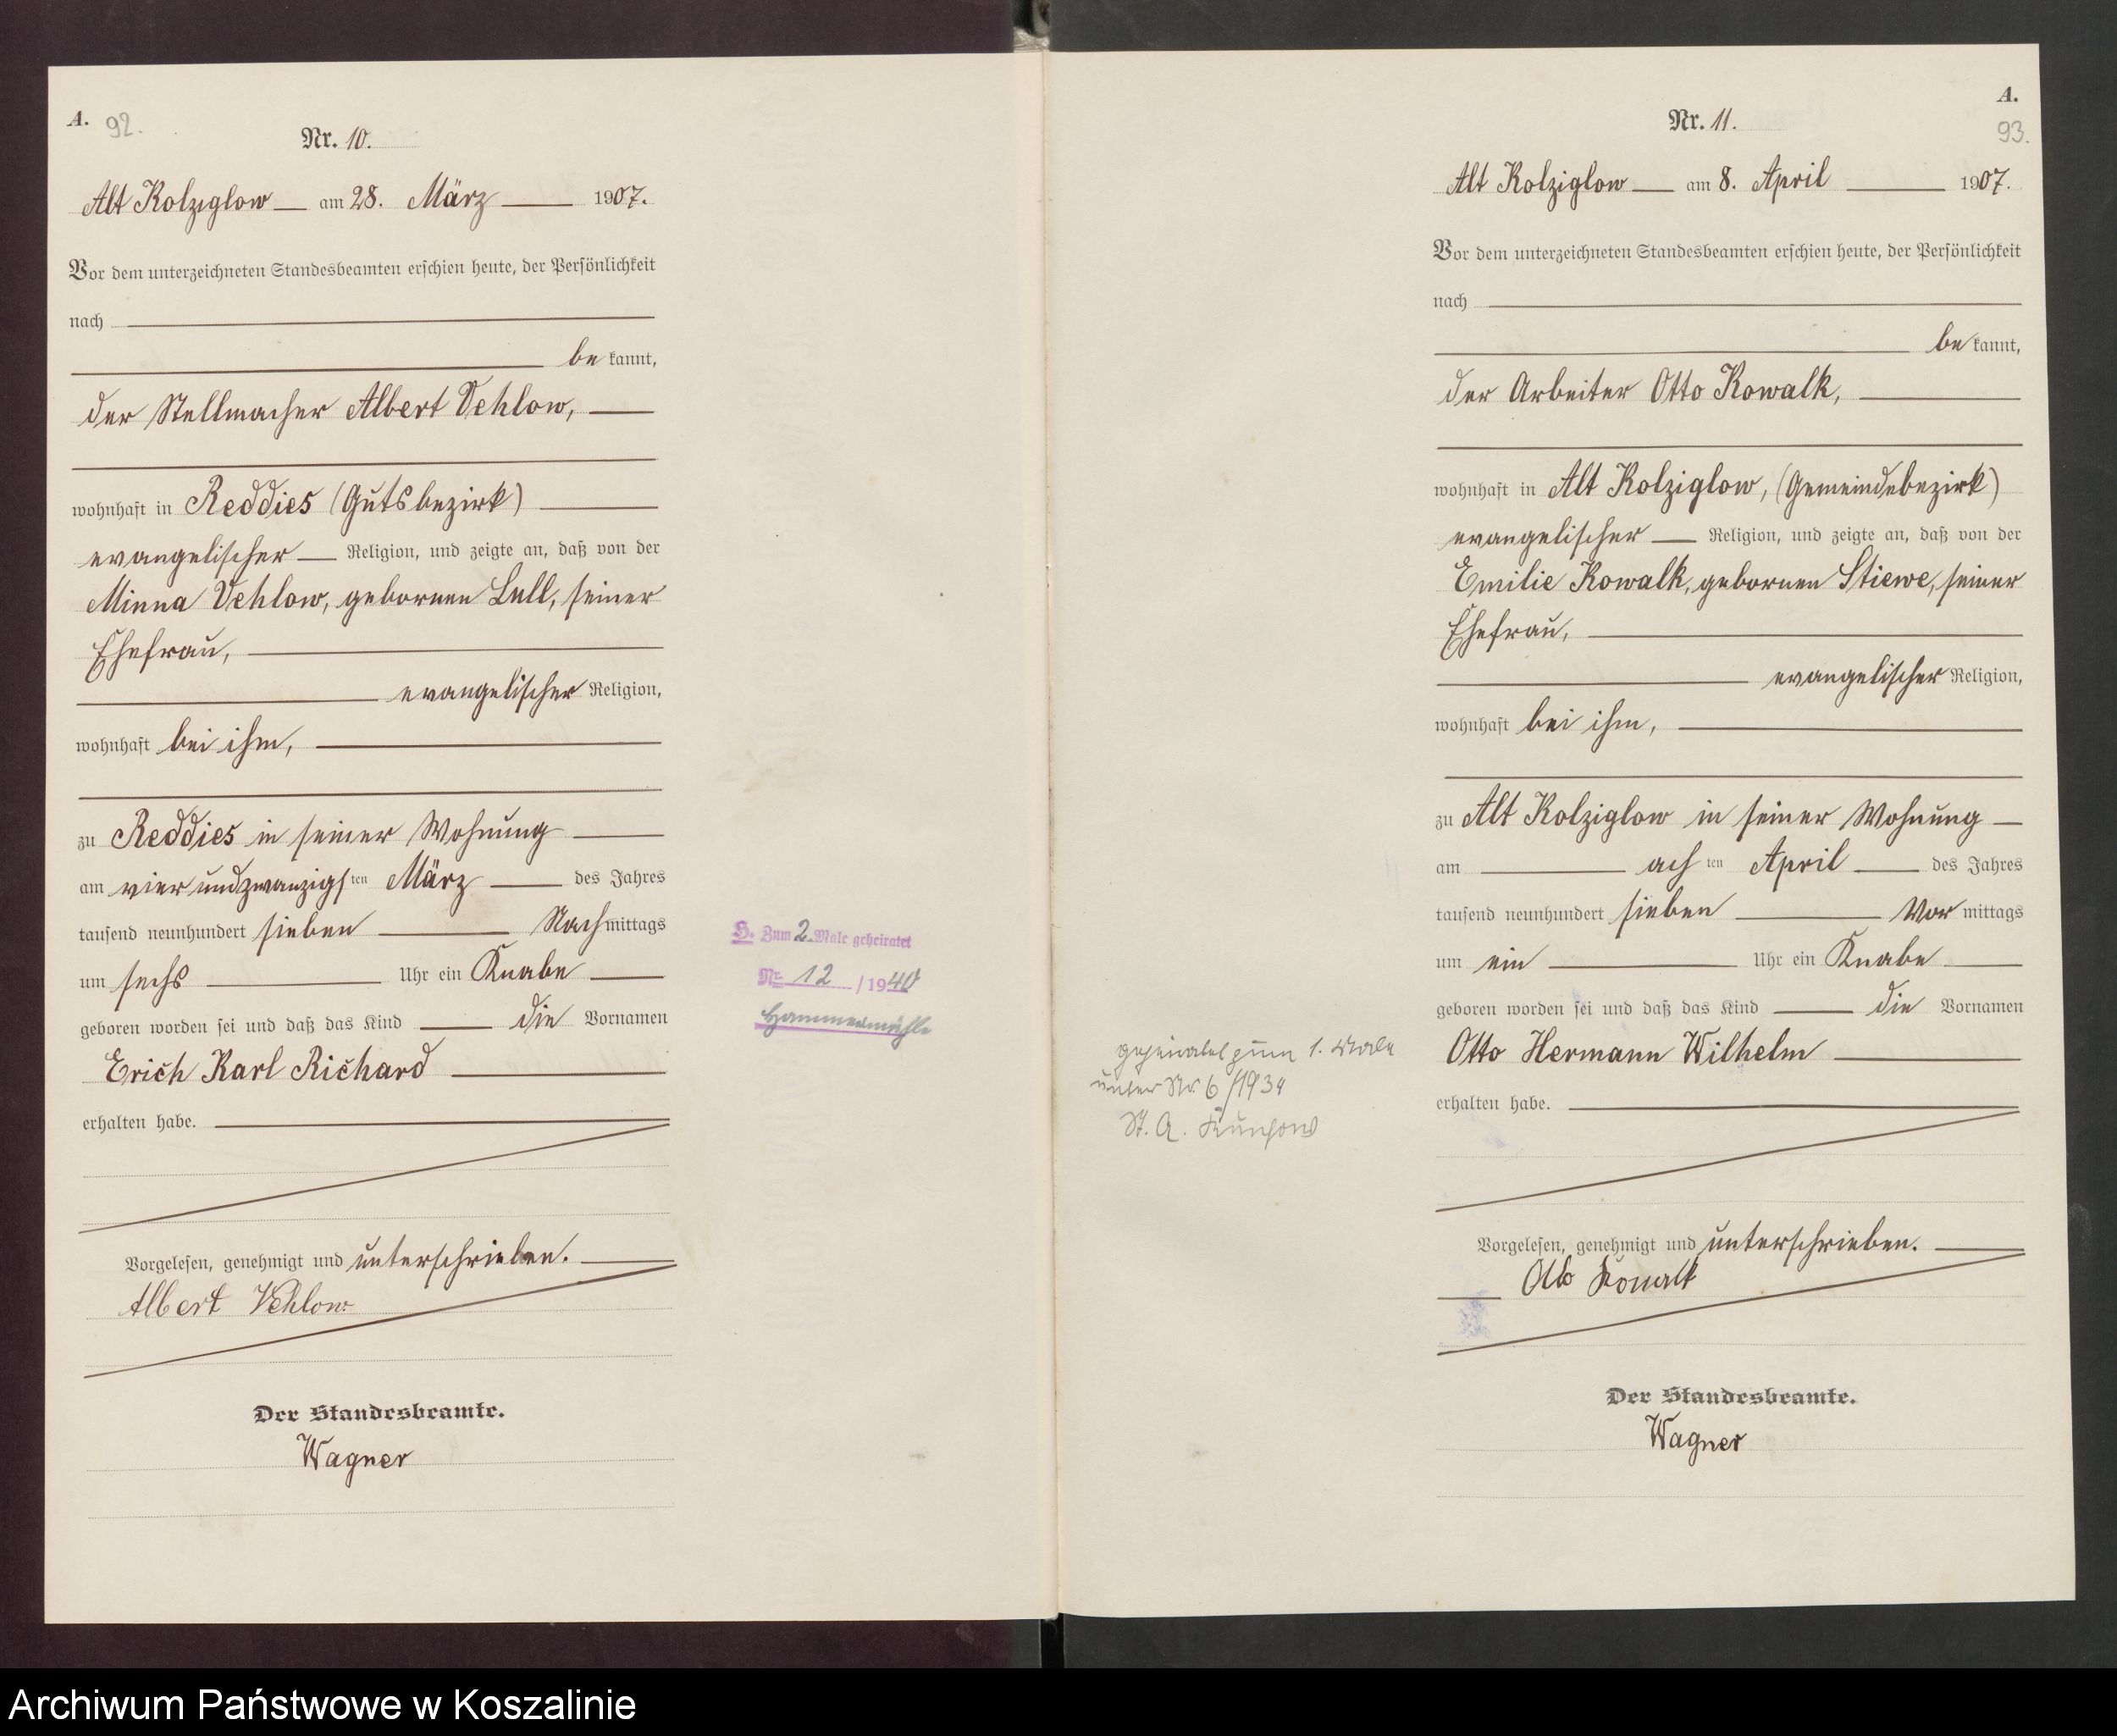 A. 92.
Nr. 10.
Alt Kolziglow am 28. März 1907.
Vor dem unterzeichneten Standesbeamten erschien heute, der Persönlichkeit
nach
be kannt,
der Stellmacher Albert Vehlow,
wohnhaft in Reddies (Gutsbezirk)
evangelischer Religion, und zeigte an, daß von der
Minna Vehlow, gebornen Lull, seiner
Ehefrau,
evangelischer Religion,
wohnhaft bei ihm,
zu Reddies in seiner Wohnung
am vierundzwanzigsten März des Jahres
tausend neunhundert sieben Nachmittags
um sechs Uhr ein Knabe
geboren worden sei und daß das Kind die Vornamen
Erich Karl Richard
erhalten habe.
Vorgelesen, genehmigt und unterschrieben.
Albert Vehlow
Der Standesbeamte.
Wagner
H. Zum 2. Male geheiratet
Nr. 12 / 1940
Hammermühle
A.
93.
Nr. 11.
Alt Kolziglow am 8. April 1907.
Vor dem unterzeichneten Standesbeamten erschien heute, der Persönlichkeit
nach
be kannt,
der Arbeiter Otto Kowalk,
wohnhaft in Alt Kolziglow, (Gemeindebezirk)
evangelischer Religion, und zeigte an, daß von der
Emilie Kowalk, gebornen Stiewe, seiner
Ehefrau,
evangelischer Religion,
wohnhaft bei ihm,
zu Alt Kolziglow in seiner Wohnung
am ach ten April des Jahres
tausend neunhundert sieben Vor mittags
um ein Uhr ein Knabe
geboren worden sei und daß das Kind die Vornamen
Otto Hermann Wilhelm
erhalten habe.
Vorgelesen, genehmigt und unterschrieben.
Otto Kowalk
Der Standesbeamte.
Wagner
geheiratet zum 1. Male
unter Nr. 6/1934
St. A.
Archiwum Państwowe w Koszalinie